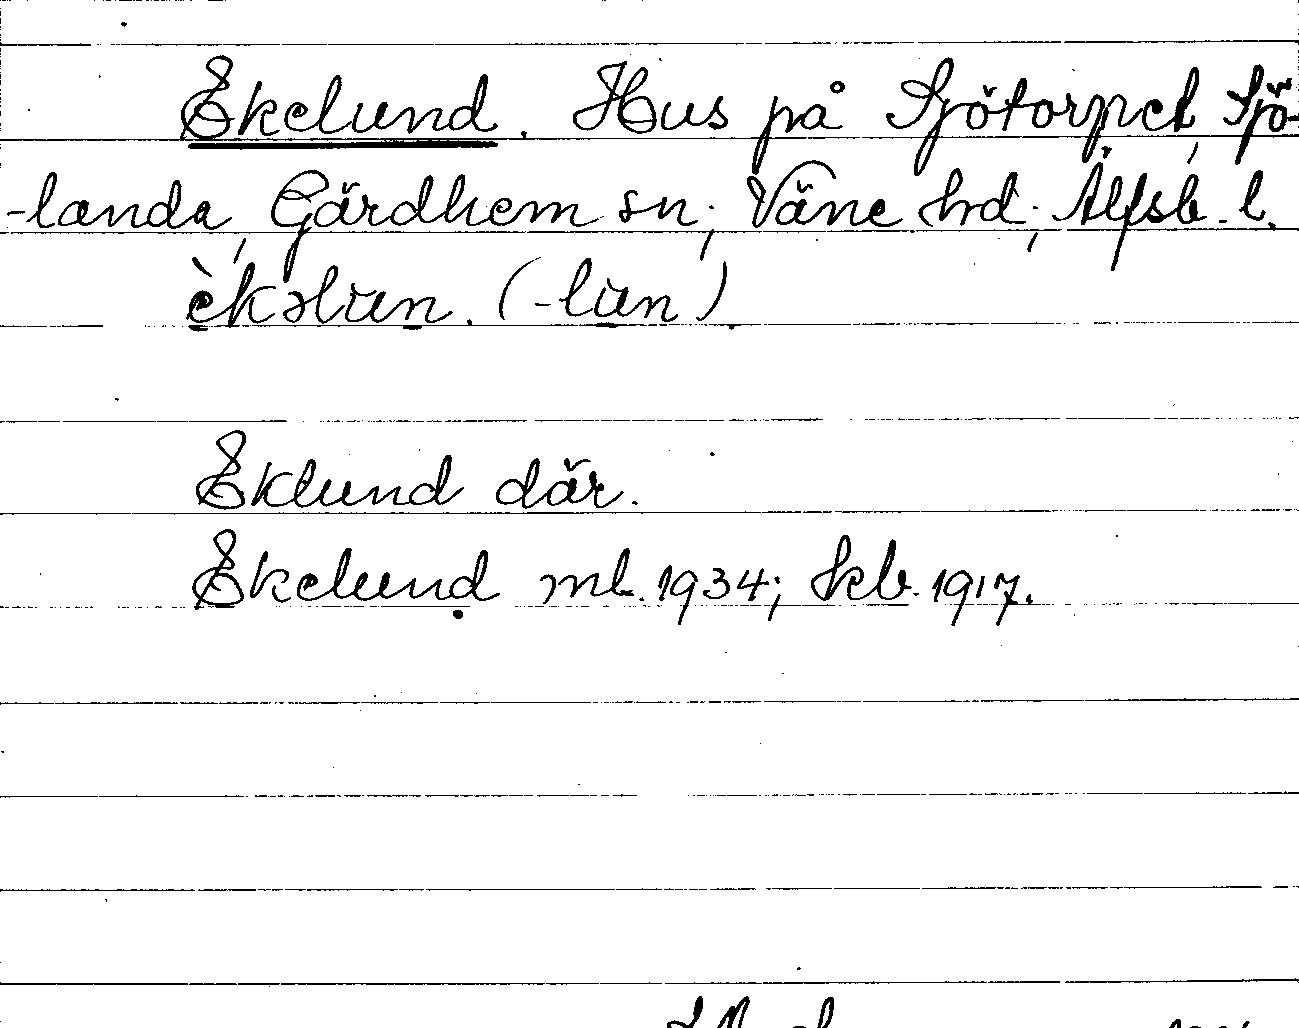 Ekelund. Hus på Sjötorpet, Sjö-
-landa, Gärdhem sn; Väne hd; Älfsb. l.
èkəlun. (-lun).
Eklund där.
Ekelund ml. 1934; kb. 1917.